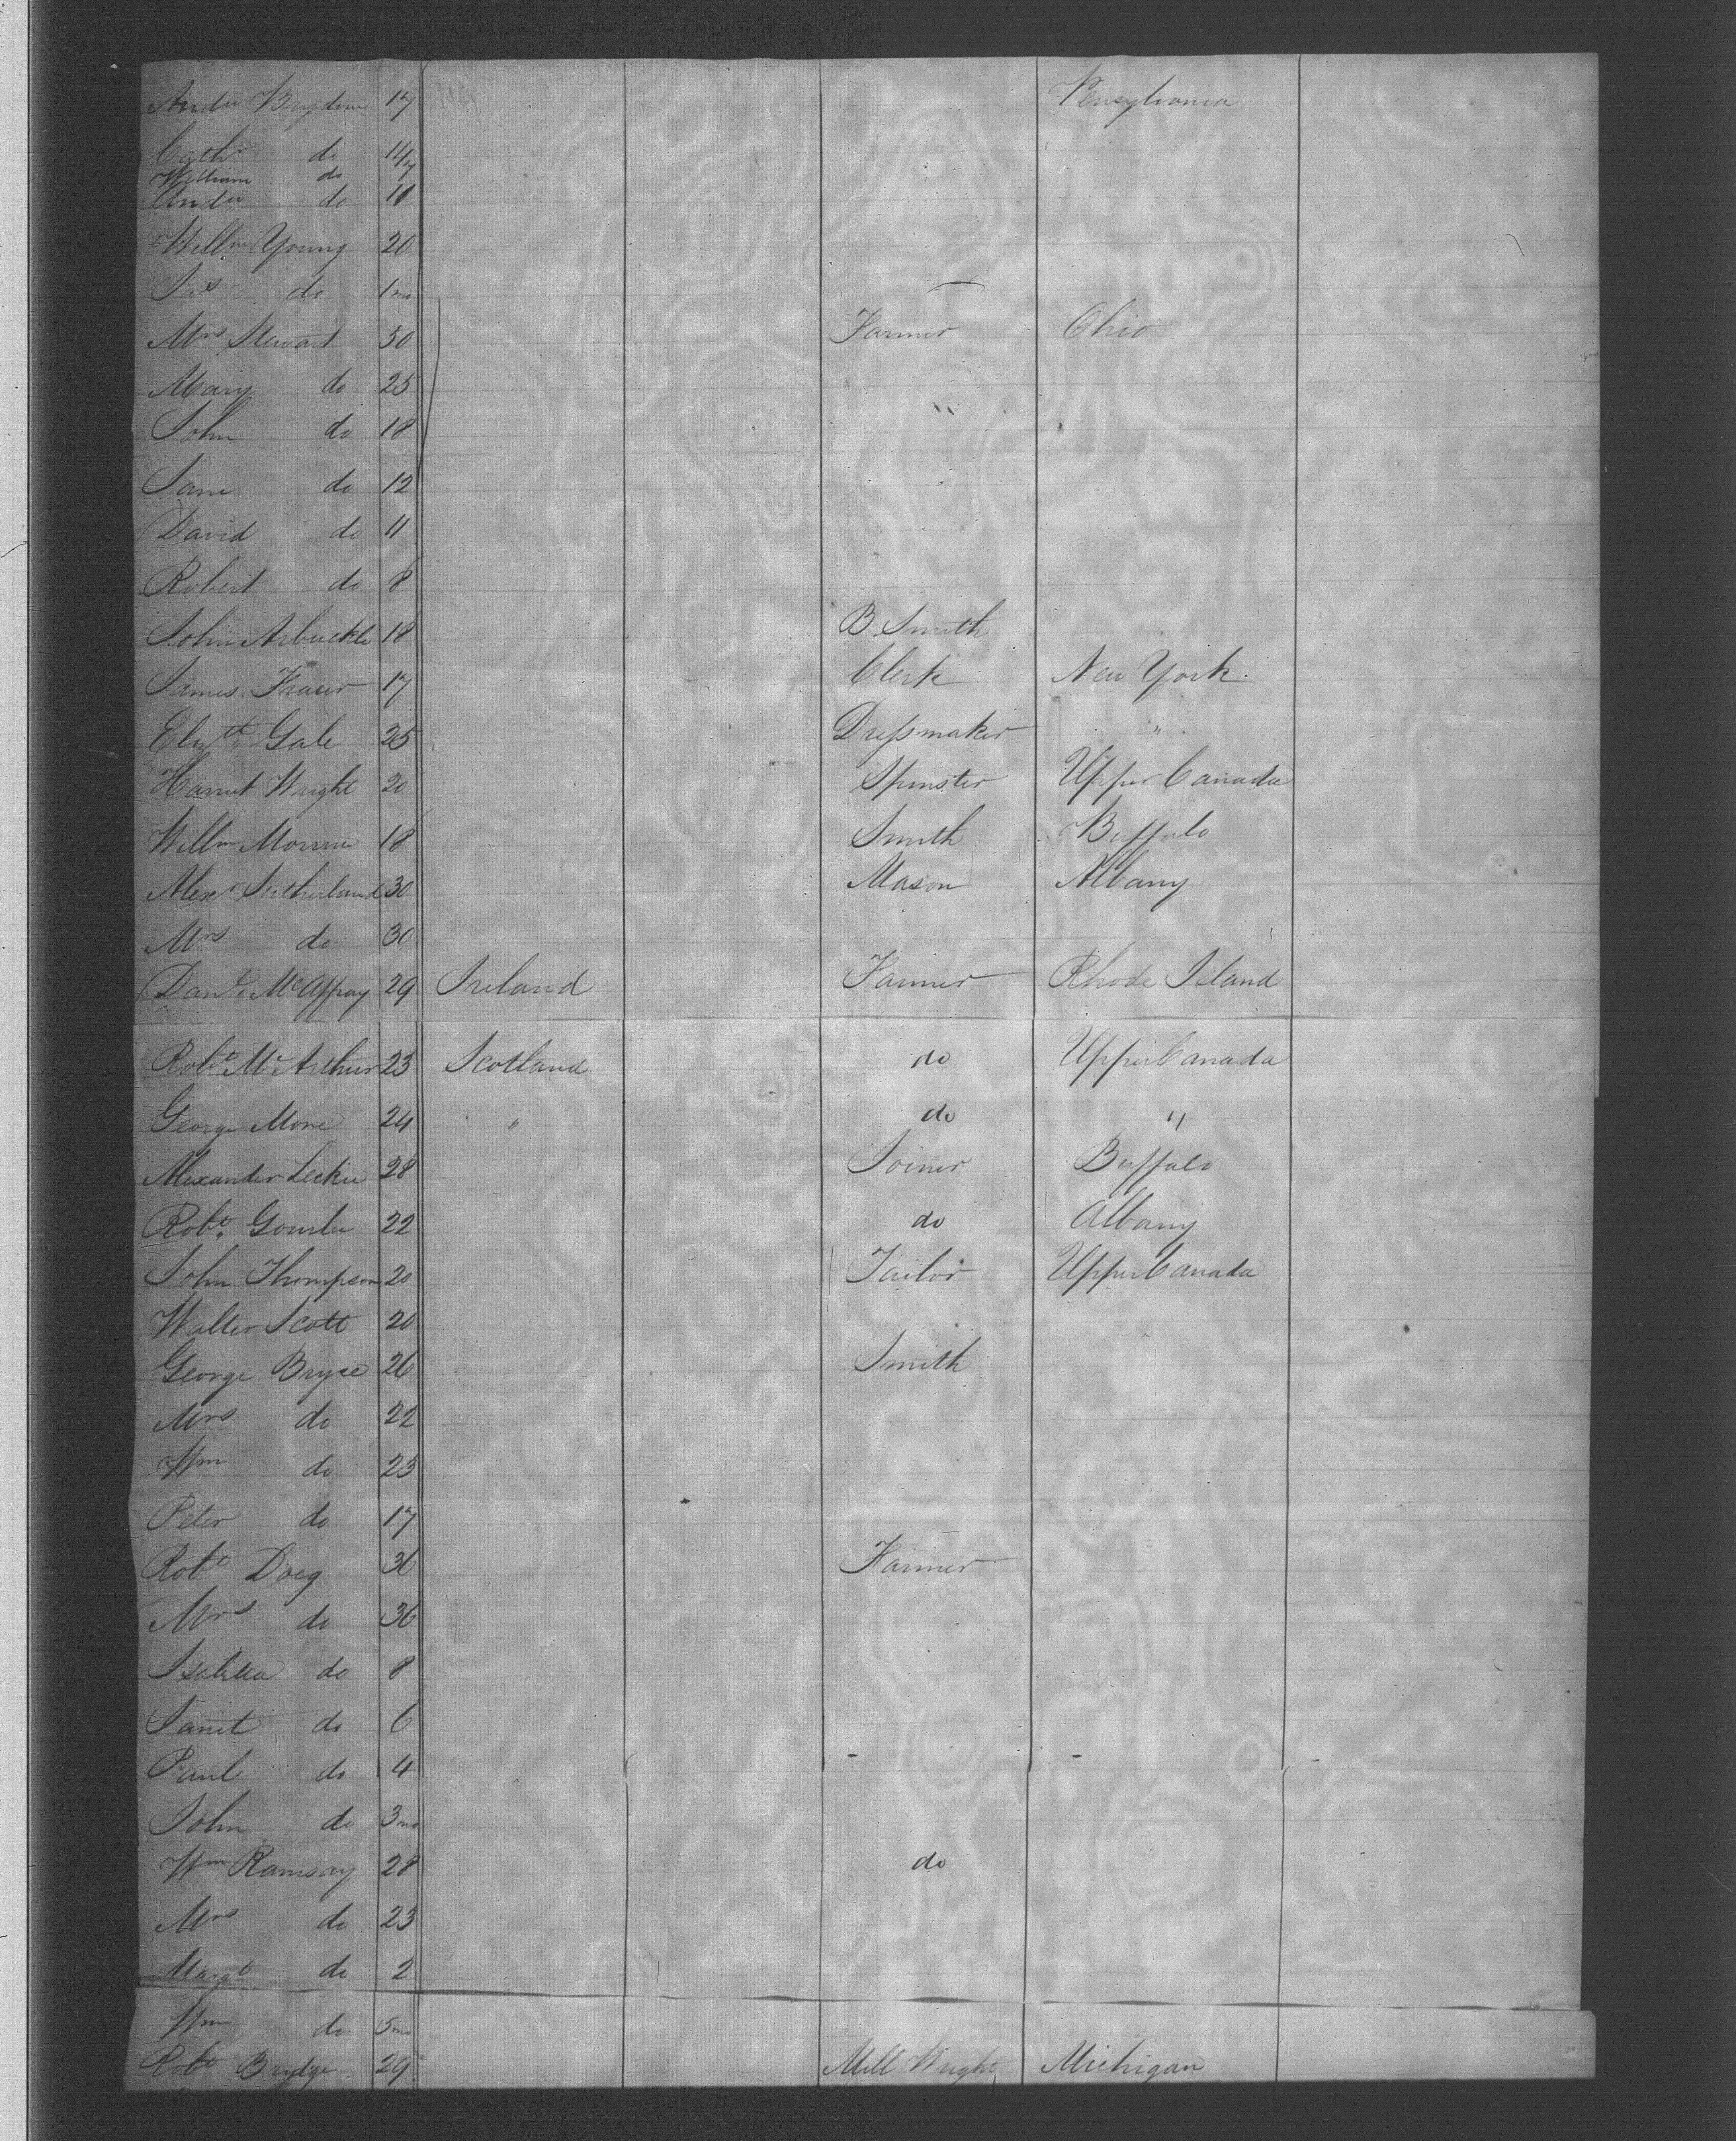 Andw Brydone 17 Pensylvania
Cathe do 14
William do 7
Andw do 11
Willm Young 20
Jas do 1mo
Mrs Stewart 50 Farmer Ohio
Mary do 25 "
John do 18
Jane do 12
David do 11
Robert do 8
John Arbuckle 18 B. Smith
James Fraser 17 Clerk New York
Elizth Gale 25 Dressmaker "
Harriet Wright 20 Spinster Upper Canada
Willm 18 Smith Buffalo
Alexr Sutherland 30 Mason Albany
Mrs do 30
Danl McAffray 29 Ireland Farmer Rhode Island
Robt McArthur 23 Scotland do Upper Canada
George More 24 " do "
Alexander Leckie 28 Joiner Buffalo
Robt Gourlie 22 do Albany
John Thompson 20 Tailor Upper Canada
Walter Scott 20
George Bryce 26 Smith
Mrs do 22
Wm do 23
Peter do 17
Robt Doeg 36 Farmer
Mrs do 36
Isabella do 8
Janet do 6
Paul do 4
John do 3mo
Wm Ramsay 28 do
Mrs do 23
Margt do 2
Wm do 5mo
Robt Brydge 29 Mill Wright Michigan